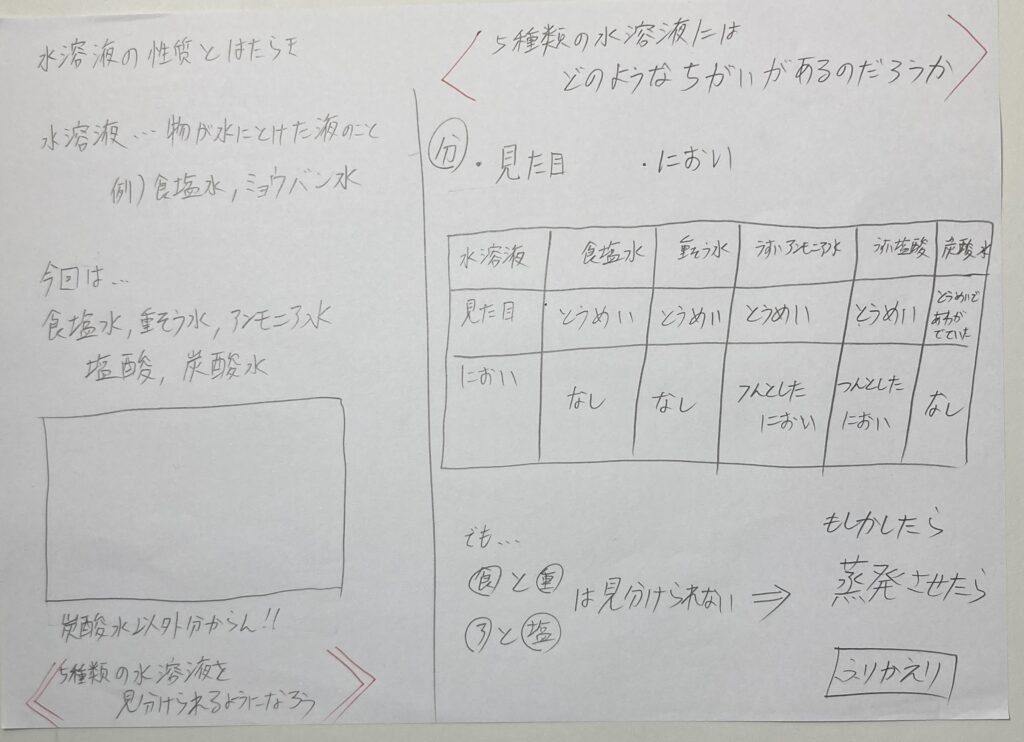 水溶液の性質とはたらき
水溶液…物が水にとけた液のこと
例)食塩水,ミョウバン水
今回は…
食塩水,重そう水,アンモニア水
塩酸,炭酸水
炭酸水以外分からん!!
5種類の水溶液を
見分けられるようになろう
5種類の水溶液には
どのようなちがいがあるのだろうか
分 ・見た目 ・におい
水溶液 食塩水 重そう水 うすいアンモニア水 うすい塩酸 炭酸水
見た目 とうめい とうめい とうめい とうめい とうめいであわがでていた
におい なし なし つんとしたにおい つんとしたにおい なし
でも…
食と重
アと塩
は見分けられない ⇒
もしかしたら
蒸発させたら
ふりかえり